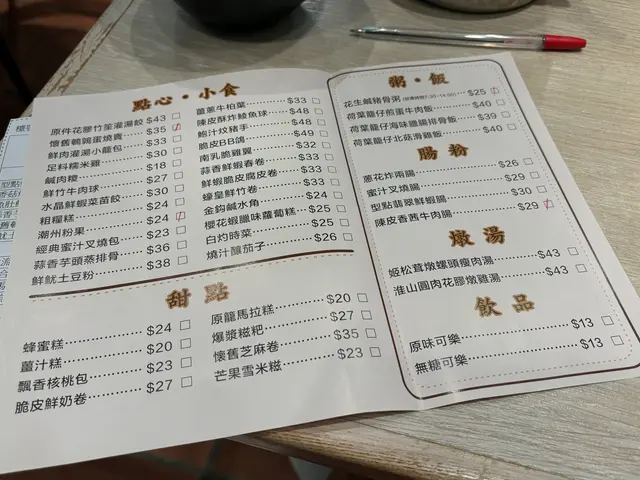 點心·小食
原件花膠竹笙灌湯餃 $43
懷舊鵪鶉蛋燒賣 $35
鮮肉灌湯小籠包 $33
足料糯米雞 $30
鹹肉糭 $18
鮮竹牛肉球 $27
水晶鮮蝦菜苗餃 $30
粗糧糕 $24
潮州粉果 $24
經典蜜汁叉燒包 $23
蒜香芋頭蒸排骨 $36
鮮魷土豆粉 $38
薑蔥牛柏葉 $33
陳皮酥炸鯪魚球 $48
鮑汁炆豬手 $48
脆皮BB鴿 $49
南乳脆雞翼 $32
蒜香鮮蝦春卷 $33
鮮蝦脆皮腐皮卷 $33
蠔皇鮮竹卷 $33
金鈎鹹水角 $24
櫻花蝦臘味蘿蔔糕 $25
白灼時菜 $25
燒汁釀茄子 $26
甜點
蜂蜜糕 $24
薑汁糕 $20
飄香核桃包 $23
脆皮鮮奶卷 $27
原籠馬拉糕 $20
爆漿糍粑 $27
懷舊芝麻卷 $35
芒果雪米糍 $23
粥·飯
花生鹹豬骨粥 $25
荷葉籠仔煎蛋牛肉飯 $40
荷葉籠仔海味臘腸排骨飯 $39
荷葉籠仔北菇滑雞飯 $40
腸粉
蔥花炸兩腸 $26
蜜汁叉燒腸 $29
型點翡翠鮮蝦腸 $30
陳皮香茜牛肉腸 $29
燉湯
姬松茸燉螺頭瘦肉湯 $43
淮山圓肉花膠燉雞湯 $43
飲品
原味可樂 $13
無糖可樂 $13